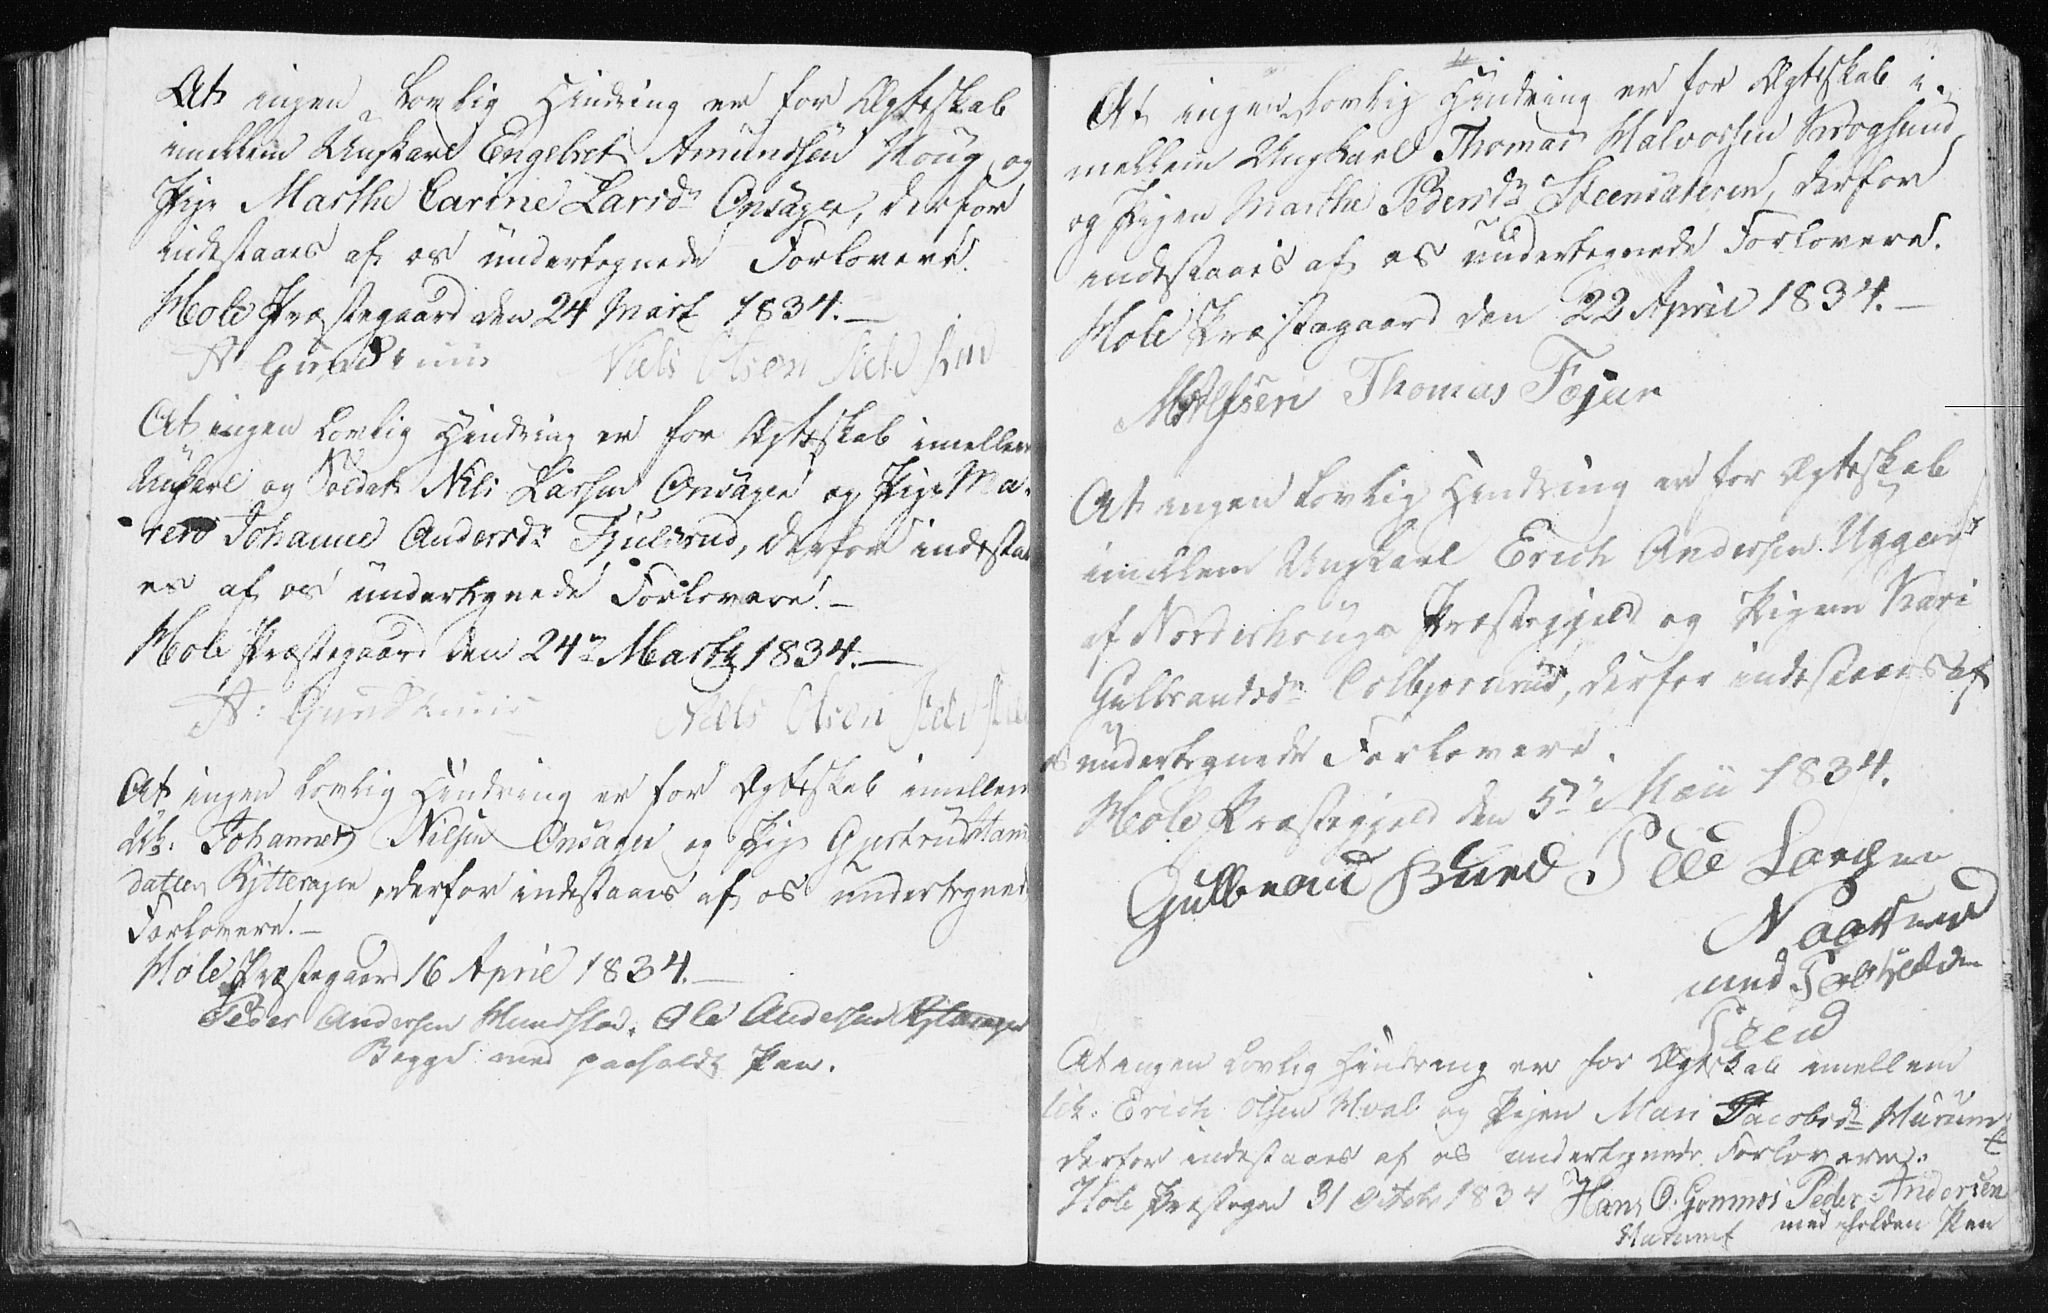 At ingen Lovlig Hindring er for Ægteskab
imellem Ungkarl Engebret Amundsen Houg, og
Pige Marthe Carine Larsdr Onsager, derfor
indestaaes af os undertegnede Forlovere.
Hole Præstegaard den 24 Marts 1834.—
A: Gundersen Niels Olsen
At ingen Lovlig Hindring er for Ægteskab imellem
Unkarl og Soldat Nils Larsen Onsager og Pige Ma-
ren Johanne Andersdr Fjulsrud, derfor indestaa
es af os undertegnede Forlovere.—
Hole Præstegaard den 24de Martz 1834.—
A: Niels Olsen
At ingen Lovlig Hindring er for Ægteskab imellem
Uk. Johannes Nilsen Onsager og Pige Gjertrud Hans
datter Rytterager, derfor indestaaes af os undertegnede
Forlovere.—
Hole Præstegaard 16 April 1834.—
Peder Andersen Ole Andersen Rytterager
Begge med paaholdt Pen.
At ingen Lovlig Hindring er for Ægteskab i-
mellem Ungkarl Thomas Halvorsen Krogsund,
og Pigen Marthe Pedersdr Steensæteren, derfor
indestaaes af os undertegnede Forlovere.
Hole Præstegaard den 22 April 1834.—
Thomas Fejer
At ingen Lovlig Hindring er for Ægteskab
imellem Ungkarl Erich Andersen
af Norderhougs Præstegjeld og Pigen Kari
Gulbrandsdr Colbjørnrud, derfor indestaaes af
os undertegnede Forlovere.
Hole Præstegjeld den 5te Maii 1834.
Gulbrand Bured Pede Larsen
med
Peen
At ingen Lovlig Hindring er for Ægteskab imellem
Uk. Erich Olsen Hval og Pigen Mari Jacobsdr
derfor indestaaes af os undertegnede Forlovere.
Hole Præstegrd 31 Octobr 1834 Hans O. Gomnes Peder Andersen
med holden Pen